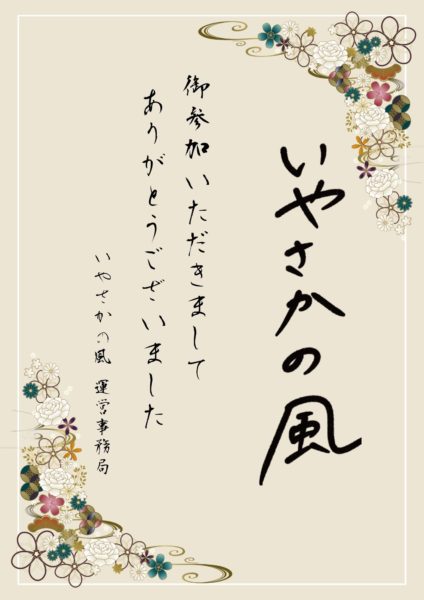 いやさかの風
御参加いただきまして
ありがとうございました
いやさかの風 運営事務局